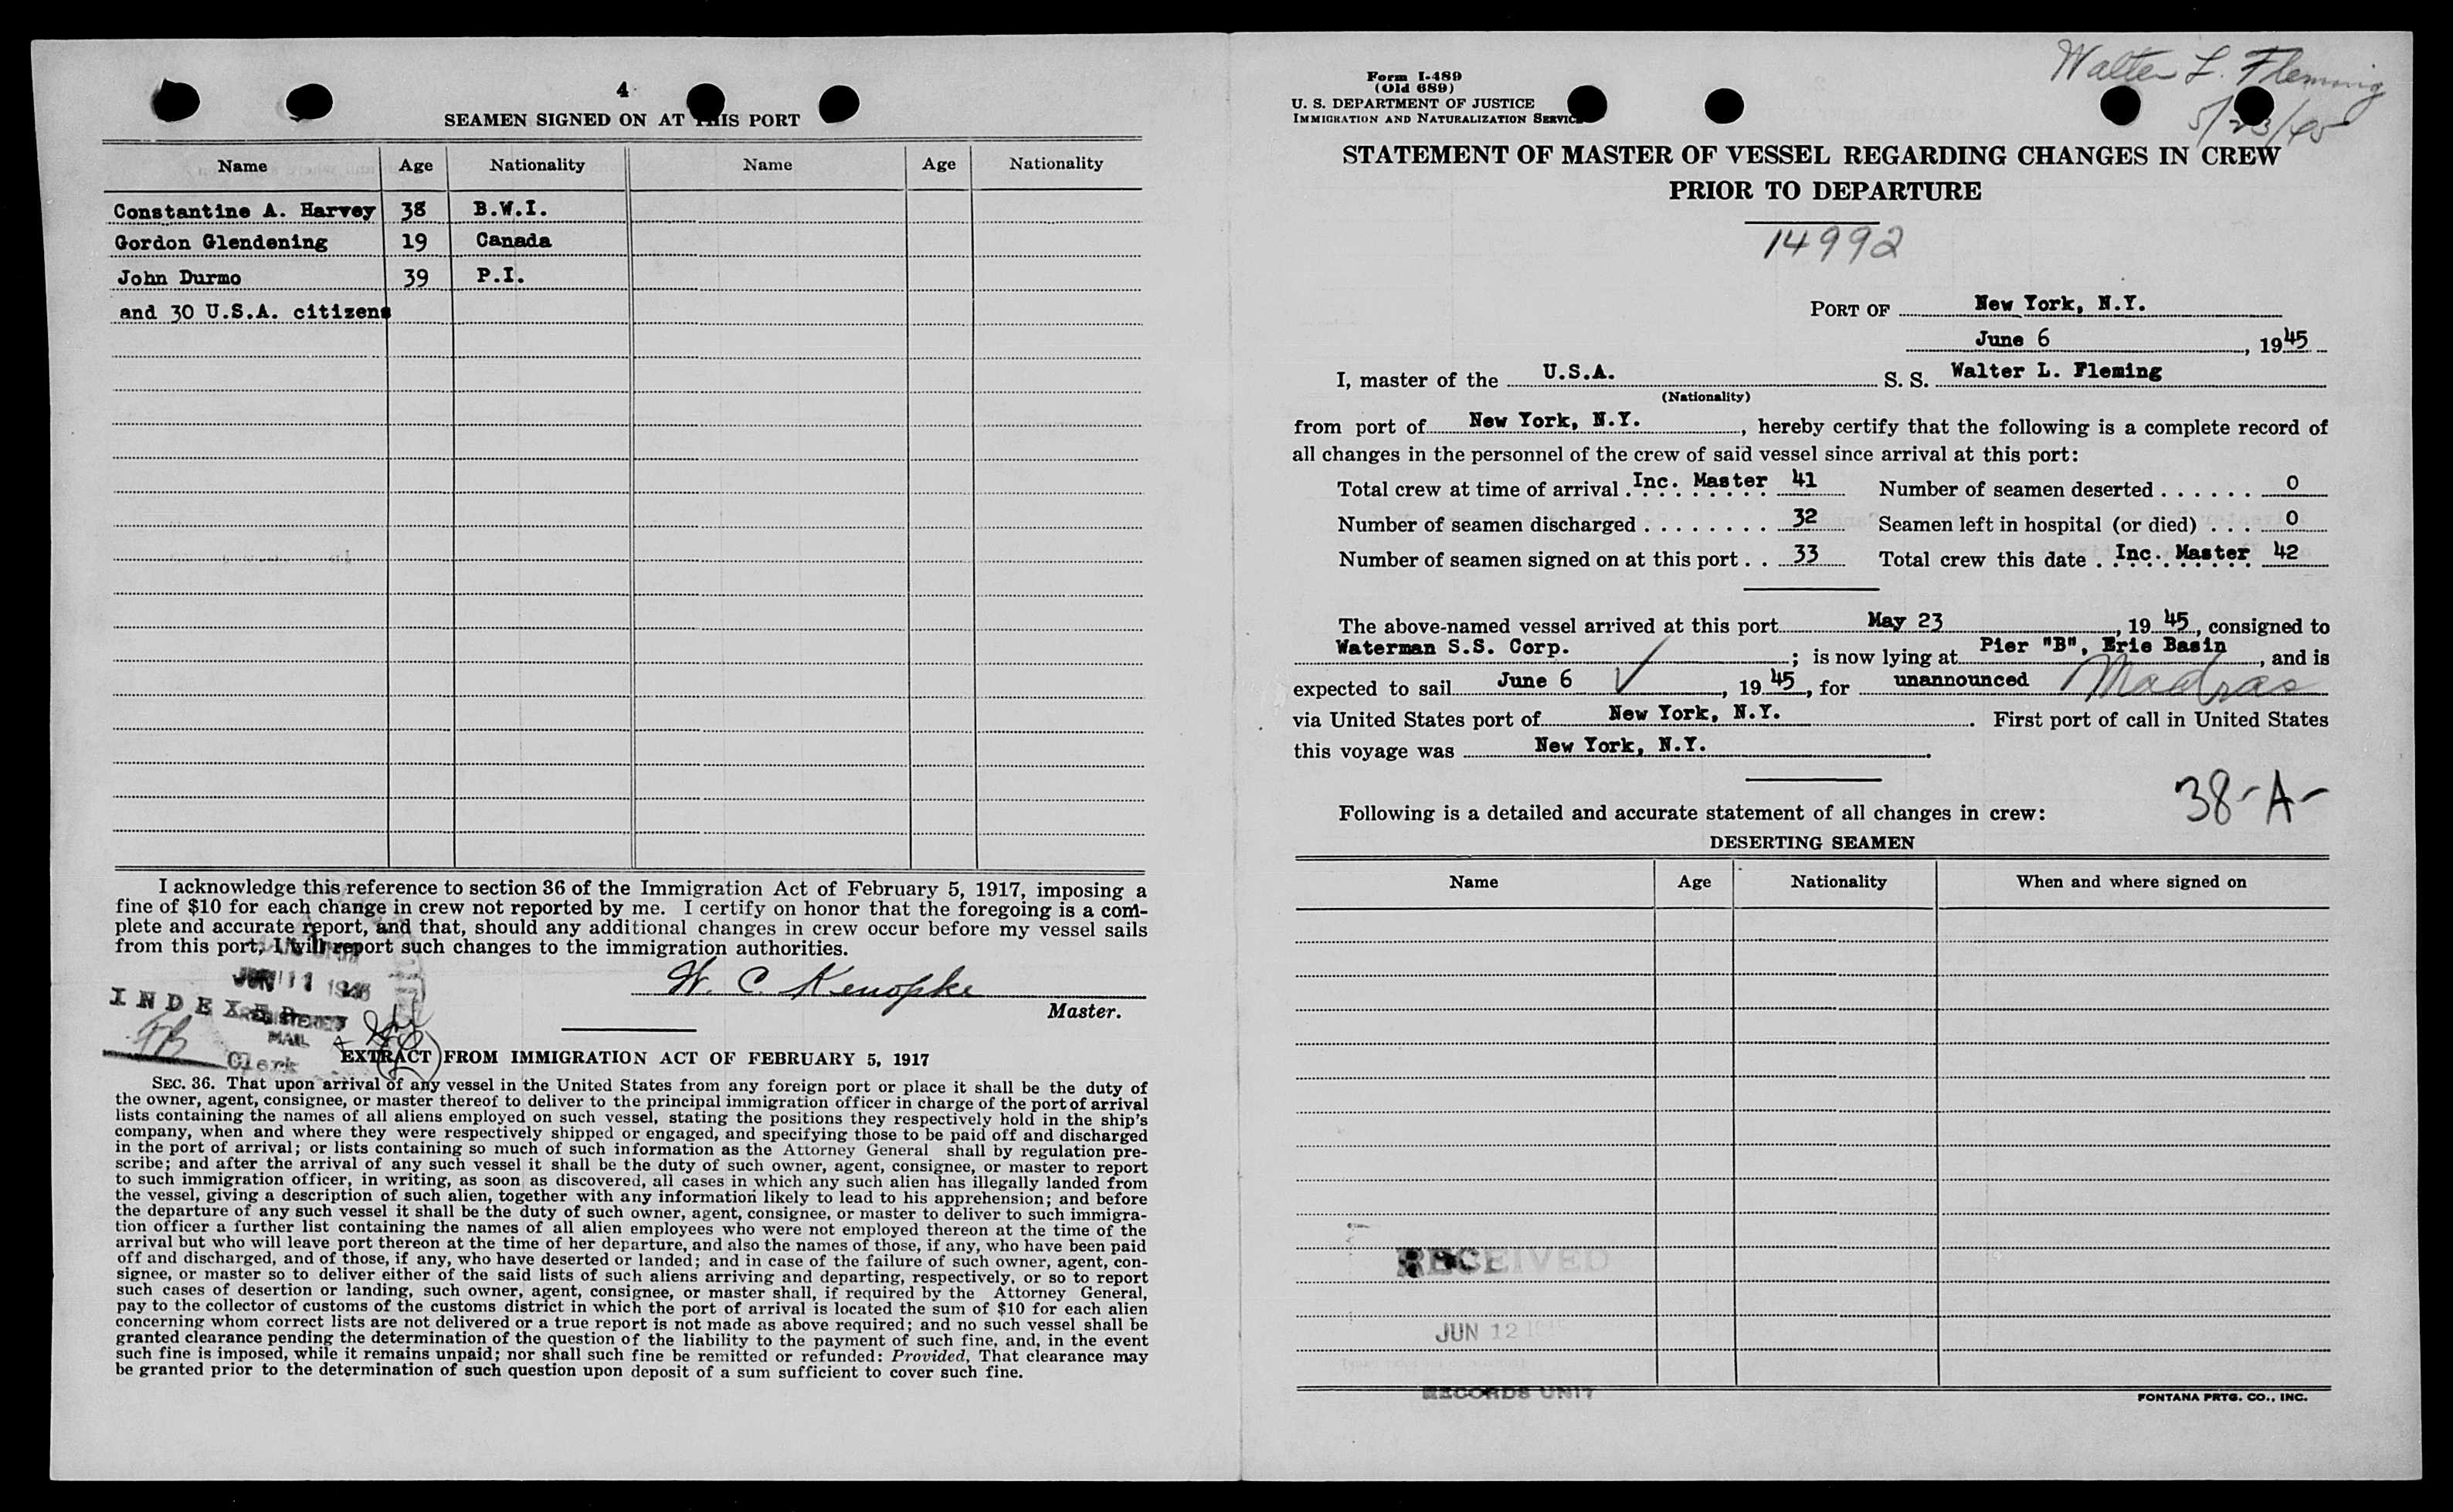 4
SEAMEN SIGNED ON AT THIS PORT
Name Age Nationality Name Age Nationality
Constantine A. Harvey 38 B.W.I.
Gordon Glendening 19 Canada
John Durmo 39 P.I.
and 30 U.S.A. citizens
I acknowledge this reference to section 36 of the Immigration Act of February 5, 1917, imposing a
fine of $10 for each change in crew not reported by me. I certify on honor that the foregoing is a com-
plete and accurate report, and that, should any additional changes in crew occur before my vessel sails
from this port, I will report such changes to the immigration authorities.
JUN 11
W. C. Kenopke
INDEXED
Master.
MAIL
Clerk
EXTRACT FROM IMMIGRATION ACT OF FEBRUARY 5, 1917
SEC. 36. That upon arrival of any vessel in the United States from any foreign port or place it shall be the duty of
the owner, agent, consignee, or master thereof to deliver to the principal immigration officer in charge of the port of arrival
lists containing the names of all aliens employed on such vessel, stating the positions they respectively hold in the ship's
company, when and where they were respectively shipped or engaged, and specifying those to be paid off and discharged
in the port of arrival; or lists containing so much of such information as the Attorney General shall by regulation pre-
scribe; and after the arrival of any such vessel it shall be the duty of such owner, agent, consignee, or master to report
to such immigration officer, in writing, as soon as discovered, all cases in which any such alien has illegally landed from
the vessel, giving a description of such alien, together with any information likely to lead to his apprehension; and before
the departure of any such vessel it shall be the duty of such owner, agent, consignee, or master to deliver to such immigra-
tion officer a further list containing the names of all alien employees who were not employed thereon at the time of the
arrival but who will leave port thereon at the time of her departure, and also the names of those, if any, who have been paid
off and discharged, and of those, if any, who have deserted or landed; and in case of the failure of such owner, agent, con-
signee, or master so to deliver either of the said lists of such aliens arriving and departing, respectively, or so to report
such cases of desertion or landing, such owner, agent, consignee, or master shall, if required by the Attorney General,
pay to the collector of customs of the customs district in which the port of arrival is located the sum of $10 for each alien
concerning whom correct lists are not delivered or a true report is not made as above required; and no such vessel shall be
granted clearance pending the determination of the question of the liability to the payment of such fine, and, in the event
such fine is imposed, while it remains unpaid; nor shall such fine be remitted or refunded: Provided, That clearance may
be granted prior to the determination of such question upon deposit of a sum sufficient to cover such fine.
Walter L. Fleming
5/23/45
Form I-489
(Old 689)
U. S. DEPARTMENT OF JUSTICE
IMMIGRATION AND NATURALIZATION SERVICE
STATEMENT OF MASTER OF VESSEL REGARDING CHANGES IN CREW
PRIOR TO DEPARTURE
14992
PORT OF New York, N.Y.
June 6, 1945
I, master of the U.S.A. S. S. Walter L. Fleming
(Nationality)
from port of New York, N.Y., hereby certify that the following is a complete record of
all changes in the personnel of the crew of said vessel since arrival at this port:
Total crew at time of arrival Inc. Master 41 Number of seamen deserted 0
Number of seamen discharged 32 Seamen left in hospital (or died) 0
Number of seamen signed on at this port 33 Total crew this date Inc. Master 42
The above-named vessel arrived at this port May 23, 1945, consigned to
Waterman S.S. Corp.; is now lying at Pier "B", Erie Basin, and is
expected to sail June 6, 1945, for unannounced Madras
via United States port of New York, N.Y. First port of call in United States
this voyage was New York, N.Y.
38-A-
Following is a detailed and accurate statement of all changes in crew:
DESERTING SEAMEN
Name Age Nationality When and where signed on
RECEIVED
JUN 12
RECORDS UNIT
FONTANA PRTG. CO., INC.